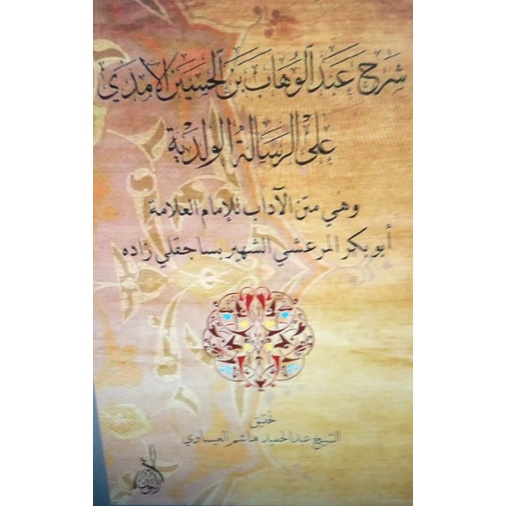 شرح عبد الوهاب بن الحسين الآمدي
على الرسالة الولدية
وهي متن الآداب للإمام العلامة
أبو بكر المرعشي الشهير بساجقلي زاده
تحقيق
الشيخ عبد الحميد هاشم العيساوي